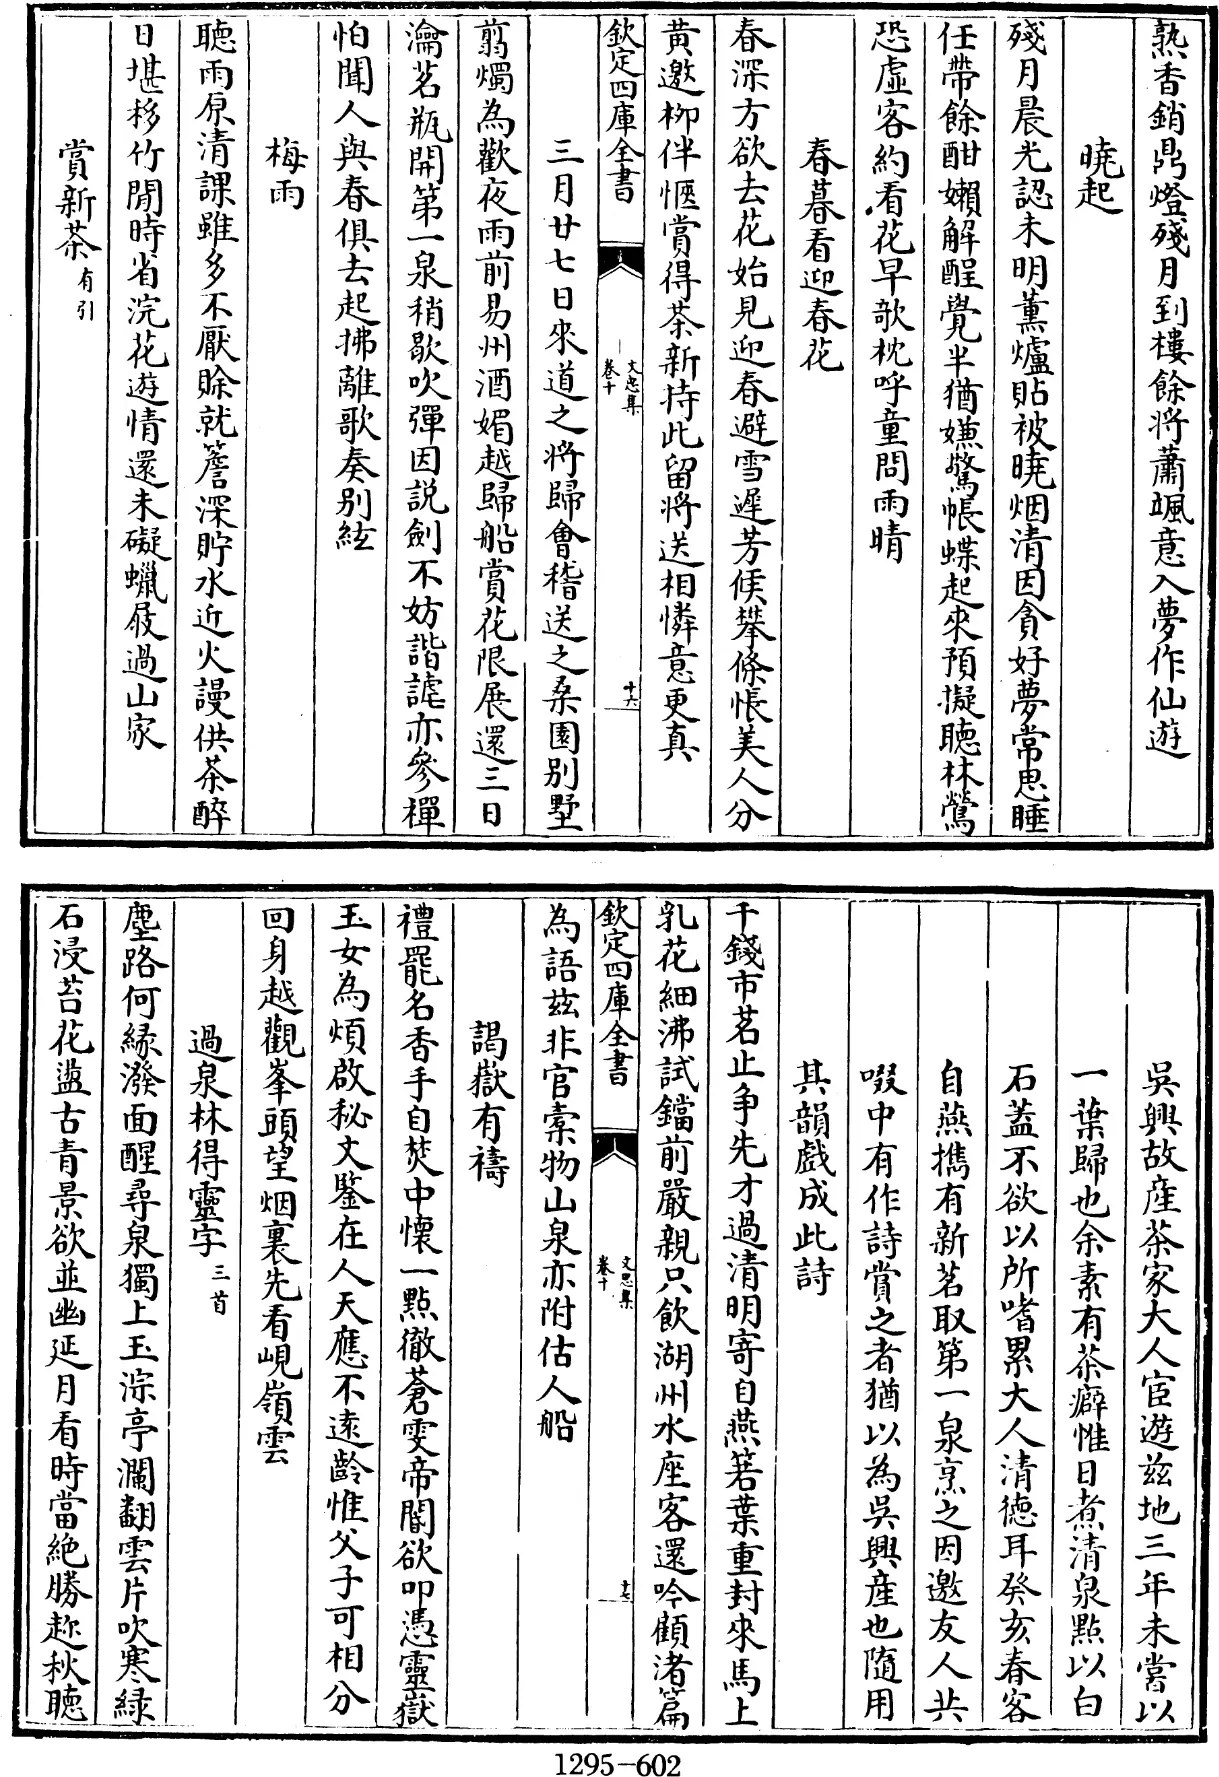 熟香銷鼎燈殘月到樓餘將蕭颯意入夢作仙遊
曉起
殘月晨光認未明薰爐貼被曉烟清因貪好夢常思睡
任帶餘酣嬾解酲覺半猶嫌驚帳蝶起來預擬聽林鶯
恐虛客約看花早欹枕呼童問雨晴
春暮看迎春花
春深方欲去花始見迎春避雪遲芳候攀條悵美人分
黃邀柳伴愜賞得茶新持此留將送相憐意更真
欽定四庫全書
文忠集
卷十
十六
三月廿七日來道之將歸會稽送之桑園別墅
翦燭為歡夜雨前易州酒媚越歸船賞花限展還三日
瀹茗瓶開第一泉稍歇吹彈因説劍不妨諧謔亦參禪
怕聞人與春俱去起拂離歌奏別絃
梅雨
聽雨原清課雖多不厭賒就簷深貯水近火謾供茶醉
日堪移竹閒時省浣花遊情還未礙蠟屐過山家
賞新茶有引
吳興故産茶家大人宦遊兹地三年未嘗以
一葉歸也余素有茶癖惟日煮清泉點以白
石蓋不欲以所嗜累大人清德耳癸亥春客
自燕攜有新茗取第一泉烹之因邀友人共
啜中有作詩賞之者猶以為吳興産也隨用
其韻戲成此詩
千錢市茗止争先才過清明寄自燕箬葉重封來馬上
乳花細沸試鐺前嚴親只飲湖州水座客還吟顧渚篇
為語兹非官橐物山泉亦附估人船
欽定四庫全書
文忠集
卷十
十七
謁嶽有禱
禮罷名香手自焚中懷一點徹蒼雯帝閽欲叩憑靈嶽
玉女為煩啟秘文鑒在人天應不遠齡惟父子可相分
回身越觀峯頭望烟裏先看峴嶺雲
過泉林得靈字三首
塵路何緣潑面醒尋泉獨上玉淙亭瀾翻雲片吹寒緑
石浸苔花盪古青景欲並幽延月看時當絶勝趂秋聽
1295-602